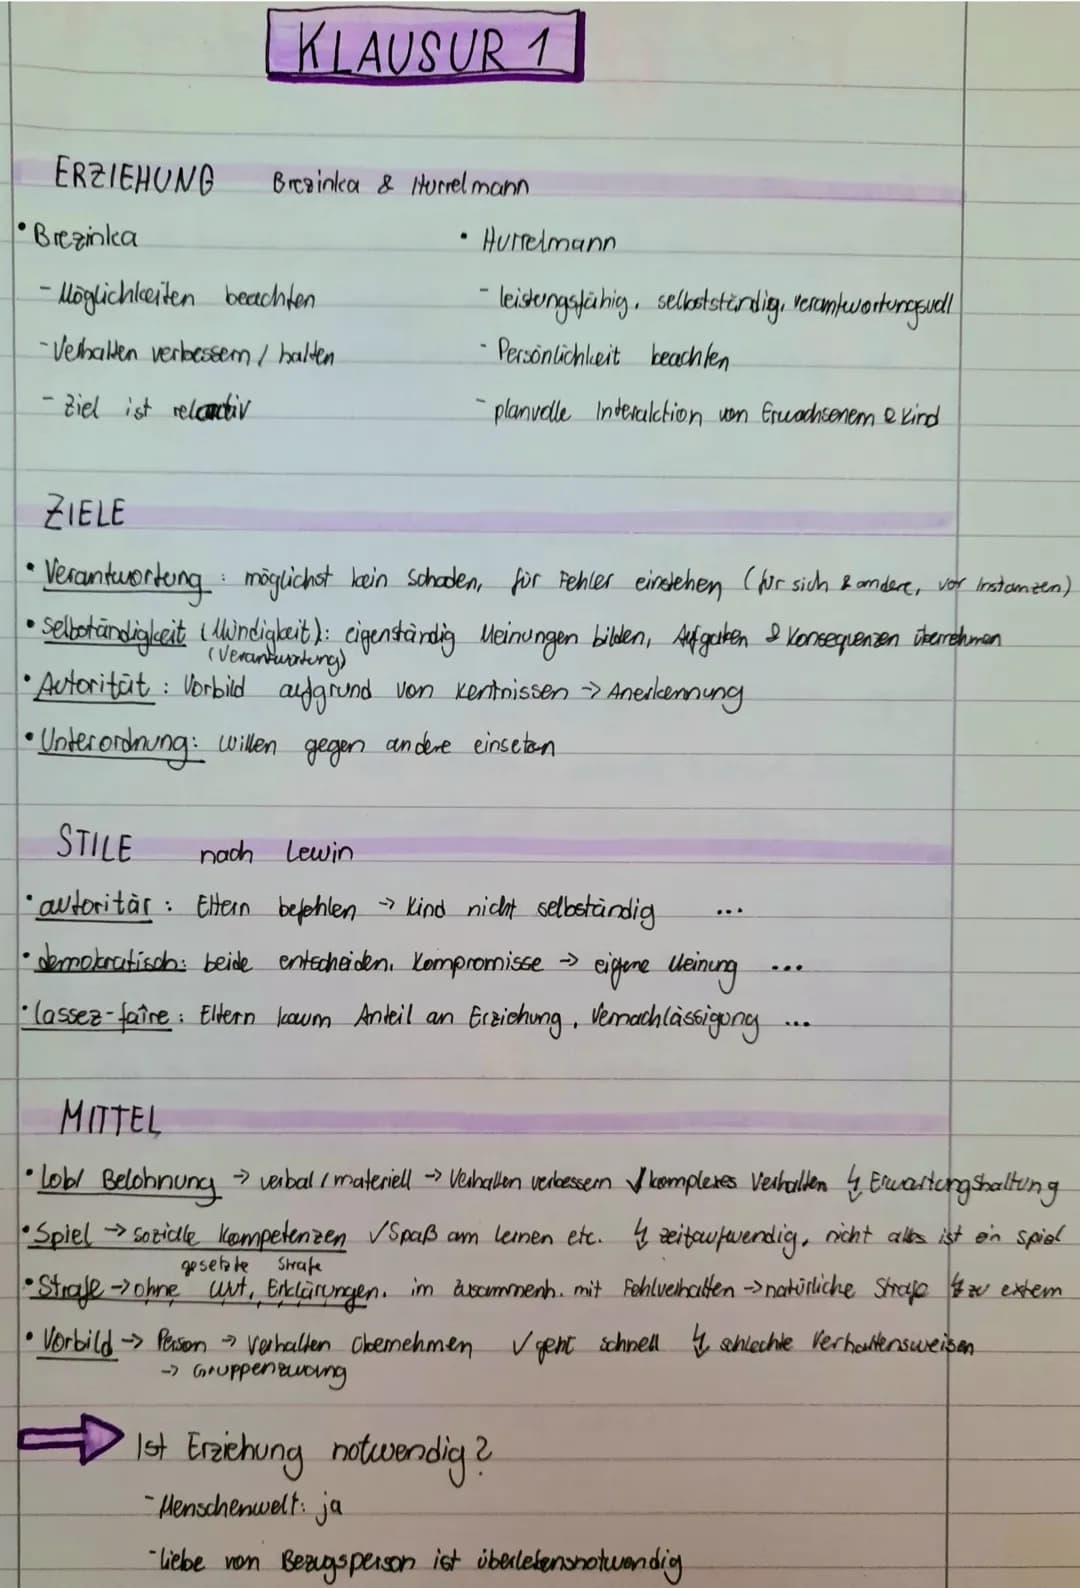 KLAUSUR 1
ERZIEHUNG Brezinka & Hurrelmann
• Brezinka
- Möglichkeiten beachten
- Verhalten verbessern / halten
- Ziel ist relativ
• Hurrelmann
- leistungsfähig, selbstständig, verantwortungsvoll
- Persönlichkeit beachten
- planvolle Interaktion von Erwachsenem & Kind
ZIELE
• Verantwortung : möglichst kein Schaden, für Fehler einstehen (für sich & andere, vor Instanzen)
• Selbständigkeit (Mündigkeit): eigenständig Meinungen bilden, Aufgaben & Konsequenzen übernehmen
(Verantwortung)
• Autorität : Vorbild aufgrund von Kentnissen → Anerkennung
• Unterordnung: willen gegen andere einsetzen
STILE nach Lewin
• autoritär : Eltern befehlen → Kind nicht selbständig ...
• demokratisch: beide entscheiden, Kompromisse → eigene Meinung ...
• lassez-faîre : Eltern kaum Anteil an Erziehung, Vernachlässigung ...
MITTEL
• Lob/ Belohnung → verbal / materiell → Verhalten verbessern ✓ komplexes Verhalten ↯ Erwartungshaltung
• Spiel → soziale Kompetenzen ✓ Spaß am lernen etc. ↯ zeitaufwendig, nicht alles ist ein Spiel
gesetzte Strafe
• Strafe → ohne Wut, Erklärungen, im zusammenh. mit Fehlverhalten → natürliche Strafe ↯ zu extem
• Vorbild → Person → Verhalten übernehmen ✓ geht schnell ↯ schlechte Verhaltensweisen
→ Gruppenzwang
Ist Erziehung notwendig?
- Menschenwelt: ja
- Liebe von Bezugsperson ist überlebensnotwendig